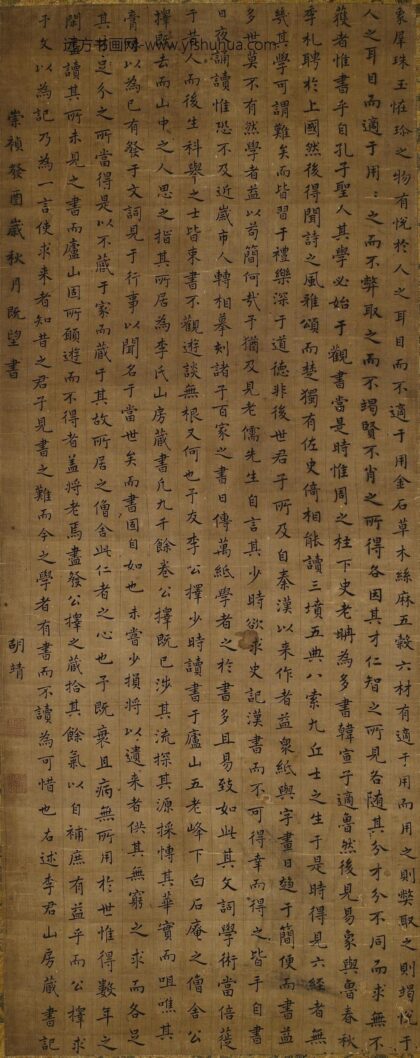 远方书画网 - www.yfshuhua.com
象犀珠玉怪珍之物有悅於人之耳目而不適于用金石草木絲麻五穀六材有適于用而用之則獘取則竭悅于
人之耳目而適于用:之而不弊取之而不竭賢不肖之所得各因其才仁智之所見各隨其分才分不同而求無不
獲者惟書乎自孔子聖人其學必始于觀書當是時惟周之柱下史老聃為多書韓宣子適魯然後見易象與魯春秋
季札聘於上國然後得聞詩之風雅頌而楚獨有左史倚相能讀三墳五典八索九丘士之生于是時得見六經者無
幾其學可謂難矣而皆習于禮樂深于道德非後世君子所及自秦漢以來作者益衆紙與字畫日趨于簡便而書益
多世莫不有然學者益以苟簡何哉予猶及見老儒先生自言其少時欲求史記漢書而不可得幸而得之皆手自書
日夜誦讀惟恐不及近歲市人轉相摹刻諸子百家之書日傳萬紙學者之於書多且易致如此其文詞學術當倍蓰
于昔人而後生科舉之士皆束書不觀遊談無根又何也予友李公擇少時讀書于廬山五老峰下白石庵之僧舍公
擇既去而山中之人思之指其所居為李氏山房藏書凡九千餘卷公擇既已涉其流探其源採慱其華實而咀嚼其
膏以為已有發于文詞見于行事以聞名于當世矣而書固自如也未嘗少損將以遺來者供其無窮之求而各足
其足分之所當得是以不藏于家而藏于其故所居之僧舍此仁者之心也予既衰且病無所用於世惟得數年之
閒讀其所未見之書而廬山固所願遊而不得者蓋將老焉盡發公擇之藏拾其餘氣以自補庶有益乎而公擇求
于文以為記乃為一言使求來者知昔之君子見書之難而今之學者有書而不讀為可惜也右述李君山房藏書記
崇禎癸酉歲秋月既望書 胡靖